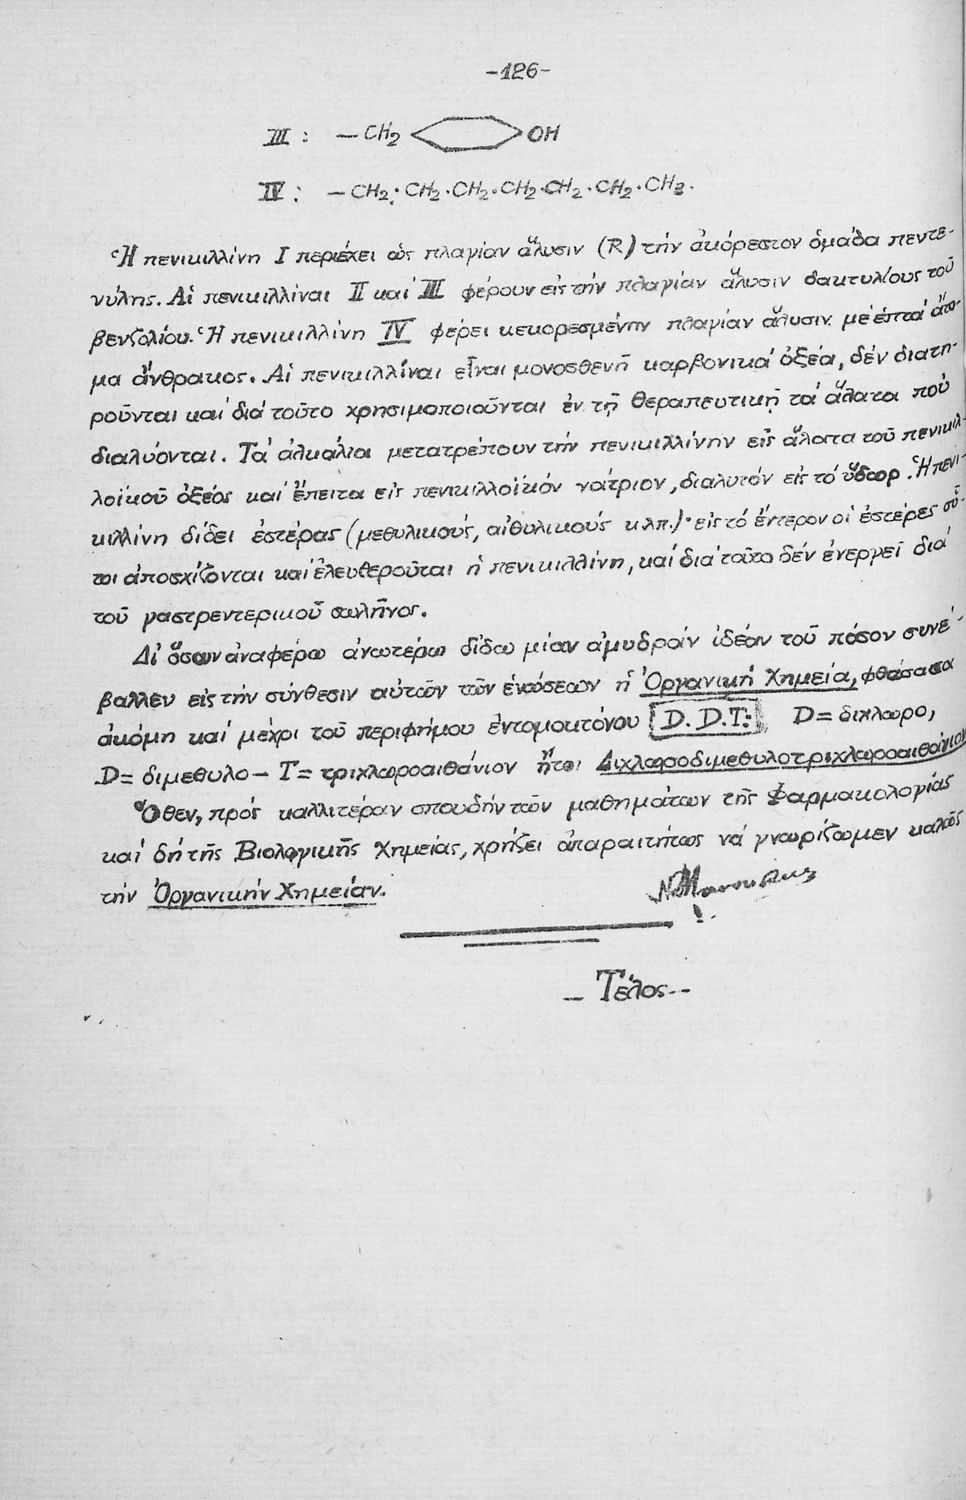 -126-
III : —CH2 OH
IV : —CH2.CH2.CH2.CH2.CH2.CH2.CH3.
Ἡ πενικιλλίνη I περιέχει ὡς πλαγίαν ἅλυσιν (R) τὴν ἀκόρεστον ὁμάδα πεντε-
νύλης. Αἱ πενικιλλίναι II καί III φέρουν εἰς τήν πλαγίαν ἅλυσιν δακτυλίους τοῦ
βενζολίου. Ἡ πενικιλλίνη IV φέρει κεκορεσμένην πλαγίαν ἅλυσιν μέ ἑπτά ἄτο-
μα ἄνθρακος. Αἱ πενικιλλίναι εἶναι μονοσθενῆ καρβονικά ὀξέα, δέν διατη-
ροῦνται καί διά τοῦτο χρησιμοποιοῦνται ἐν τῇ θεραπευτικῇ τά ἅλατα πού
διαλύονται. Τά ἀλκάλια μετατρέπουν τήν πενικιλλίνην εἰς ἅλατα τοῦ πενικιλ-
λοϊκοῦ ὀξέος καί ἔπειτα εἰς πενικιλλοϊκόν νάτριον, διαλυτόν εἰς τό ὕδωρ. Ἡ πενι-
κιλλίνη δίδει ἐστέρας (μεθυλικούς, αἰθυλικούς κ.λπ.)· εἰς τό ἔντερον οἱ ἐστέρες οὗ-
τοι ἀποσχίζονται καί ἐλευθεροῦται ἡ πενικιλλίνη, καί διά τοῦτο δέν ἐνεργεῖ διά
τοῦ γαστρεντερικοῦ σωλῆνος.
Δι' ὅσων ἀναφέρω ἀνωτέρω δίδω μίαν ἀμυδράν ἰδέαν τοῦ πόσον συνέ-
βαλλεν εἰς τήν σύνθεσιν αὐτῶν τῶν ἑνώσεων ἡ Ὀργανική Χημεία, φθάσασα
ἀκόμη καί μέχρι τοῦ περιφήμου ἐντομοκτόνου D.D.T: D= διχλωρο,
D= διμεθυλο — T= τριχλωροαιθάνιον ἤτοι Διχλωροδιμεθυλοτριχλωροαιθάνιον
Ὅθεν, πρός καλλιτέραν σπουδήν τῶν μαθημάτων τῆς Φαρμακολογίας
καί δή τῆς Βιολογικῆς Χημείας, χρήζει ἀπαραιτήτως νά γνωρίζωμεν καλῶς
τήν Ὀργανικήν Χημείαν.
— Τέλος --